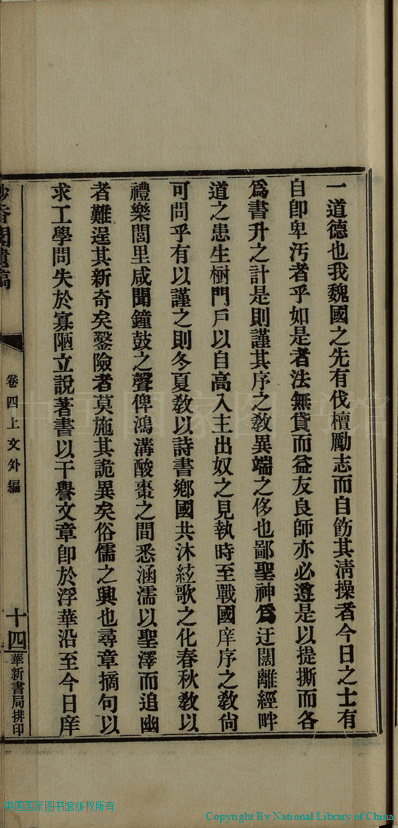 一道德也我魏國之先有伐檀勵志而自飭其清操者今日之士有
自卽卑汚者乎如是者法無貸而益友良師亦必遵是以提撕而各
爲書升之計是則謹其序之敎異端之侈也鄙聖神爲迂闊離經畔
道之患生樹門戶以自高入主出奴之見執時至戰國庠序之敎尙
可問乎有以謹之則冬夏敎以詩書鄕國共沐絃歌之化春秋敎以
禮樂閭里咸聞鐘鼓之聲俾鴻溝酸棗之間悉涵濡以聖澤而追幽
者難逞其新奇矣鑿險者莫施其詭異矣俗儒之興也尋章摘句以
求工學問失於寡陋立說著書以干譽文章卽於浮華沿至今日庠
香閣遺稿
卷四上文外編
十四
華新書局排印
中国国家图书馆版权所有
Copyright By National Library of China